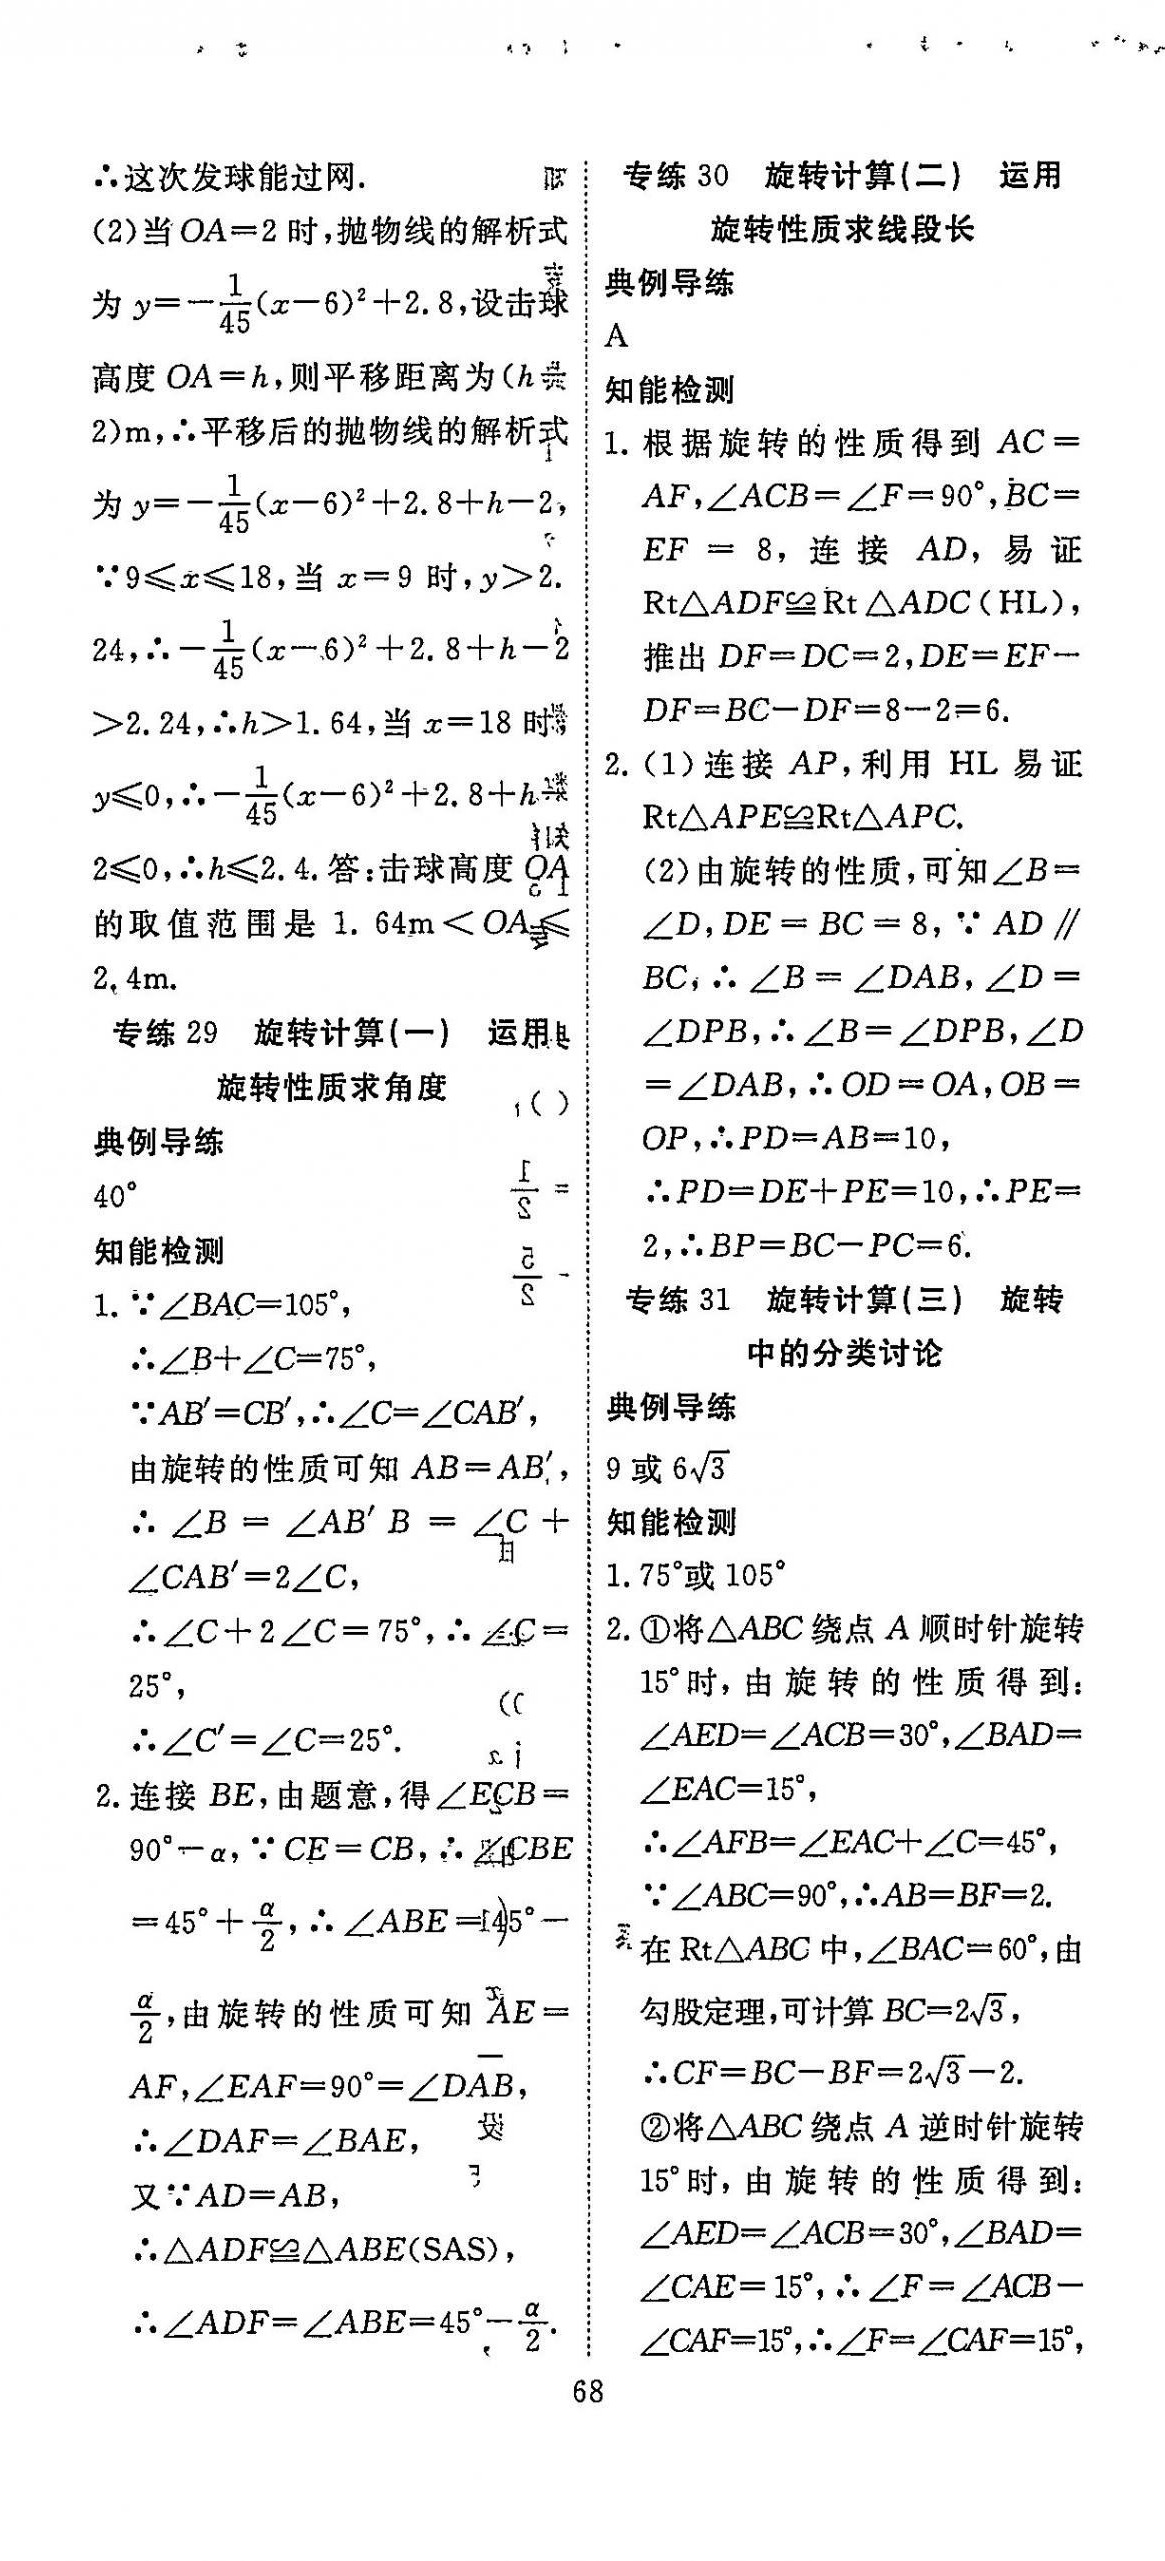 ∴这次发球能过网.
(2)当 OA=2 时,抛物线的解析式
为 y=-1/45(x-6)²+2.8,设击球
高度 OA=h,则平移距离为(h
2)m,∴平移后的抛物线的解析式
为 y=-1/45(x-6)²+2.8+h-2,
∵9≤x≤18,当 x=9 时,y>2.
24,∴-1/45(x-6)²+2.8+h-2
>2.24,∴h>1.64,当 x=18 时,
y≤0,∴-1/45(x-6)²+2.8+h
2≤0,∴h≤2.4.答:击球高度 OA
的取值范围是 1.64m<OA≤
2.4m.
专练 29 旋转计算(一) 运用
旋转性质求角度
典例导练
40°
知能检测
1. ∵∠BAC=105°,
∴∠B+∠C=75°,
∵AB′=CB′,∴∠C=∠CAB′,
由旋转的性质可知 AB=AB′,
∴ ∠B = ∠AB′B = ∠C +
∠CAB′=2∠C,
∴∠C+2∠C=75°,∴∠C=
25°,
∴∠C′=∠C=25°.
2. 连接 BE,由题意,得∠ECB=
90°-α,∵CE=CB,∴∠CBE
=45°+α/2,∴∠ABE=45°-
α/2,由旋转的性质可知 AE=
AF,∠EAF=90°=∠DAB,
∴∠DAF=∠BAE,
又∵AD=AB,
∴△ADF≌△ABE(SAS),
∴∠ADF=∠ABE=45°-α/2.
专练 30 旋转计算(二) 运用
旋转性质求线段长
典例导练
A
知能检测
1. 根据旋转的性质得到 AC=
AF,∠ACB=∠F=90°,BC=
EF = 8, 连接 AD, 易证
Rt△ADF≌Rt△ADC(HL),
推出 DF=DC=2,DE=EF-
DF=BC-DF=8-2=6.
2. (1)连接 AP,利用 HL 易证
Rt△APE≌Rt△APC.
(2)由旋转的性质,可知∠B=
∠D,DE=BC=8,∵AD∥
BC,∴∠B=∠DAB,∠D=
∠DPB,∴∠B=∠DPB,∠D
=∠DAB,∴OD=OA,OB=
OP,∴PD=AB=10,
∴PD=DE+PE=10,∴PE=
2,∴BP=BC-PC=6.
专练 31 旋转计算(三) 旋转
中的分类讨论
典例导练
9 或 6√3
知能检测
1. 75°或 105°
2. ①将△ABC 绕点 A 顺时针旋转
15°时,由旋转的性质得到:
∠AED=∠ACB=30°,∠BAD=
∠EAC=15°,
∴∠AFB=∠EAC+∠C=45°,
∵∠ABC=90°,∴AB=BF=2.
在 Rt△ABC 中,∠BAC=60°,由
勾股定理,可计算 BC=2√3,
∴CF=BC-BF=2√3-2.
②将△ABC 绕点 A 逆时针旋转
15°时,由旋转的性质得到:
∠AED=∠ACB=30°,∠BAD=
∠CAE=15°,∴∠F=∠ACB-
∠CAF=15°,∴∠F=∠CAF=15°,
68